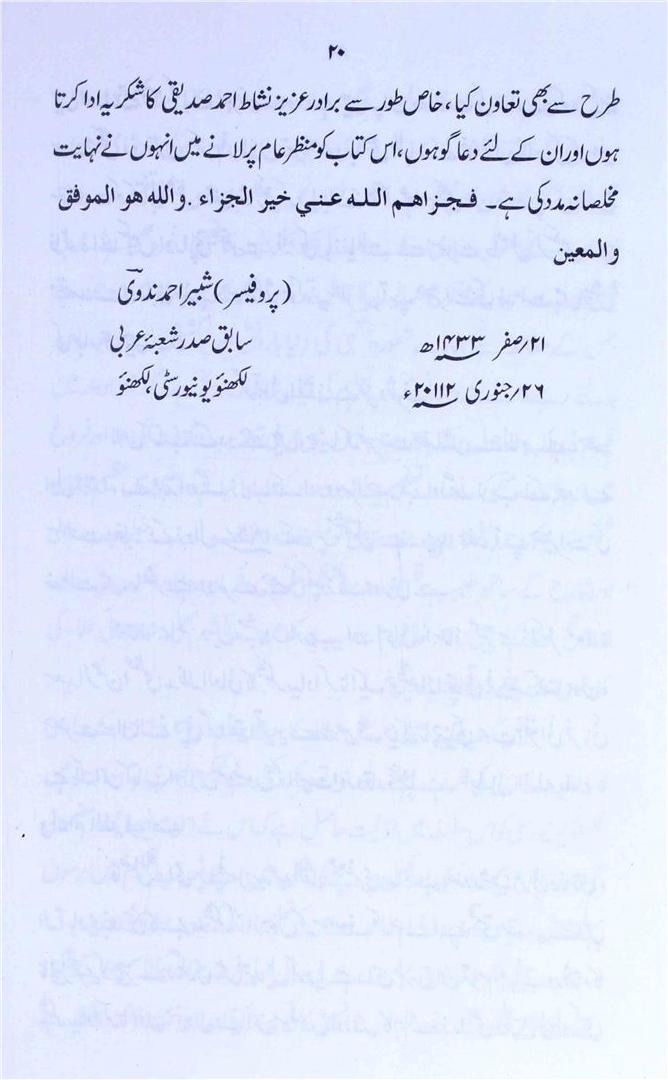 ۲۰
طرح سے بھی تعاون کیا، خاص طور سے برادر عزیز نشاط احمد صدیقی کا شکریہ ادا کرتا
ہوں اور ان کے لئے دعا گو ہوں، اس کتاب کو منظر عام پر لانے میں انہوں نے نہایت
مخلصانہ مدد کی ہے۔ فجزاهم الله عني خير الجزاء .والله هو الموفق
والمعين
(پروفیسر) شبیر احمد ندویؔ
۲۱؍ صفر ۱۴۳۳ھ سابق صدر شعبۂ عربی
۲۶؍ جنوری ۲۰۱۱۲ء لکھنؤ یونیورسٹی، لکھنؤ